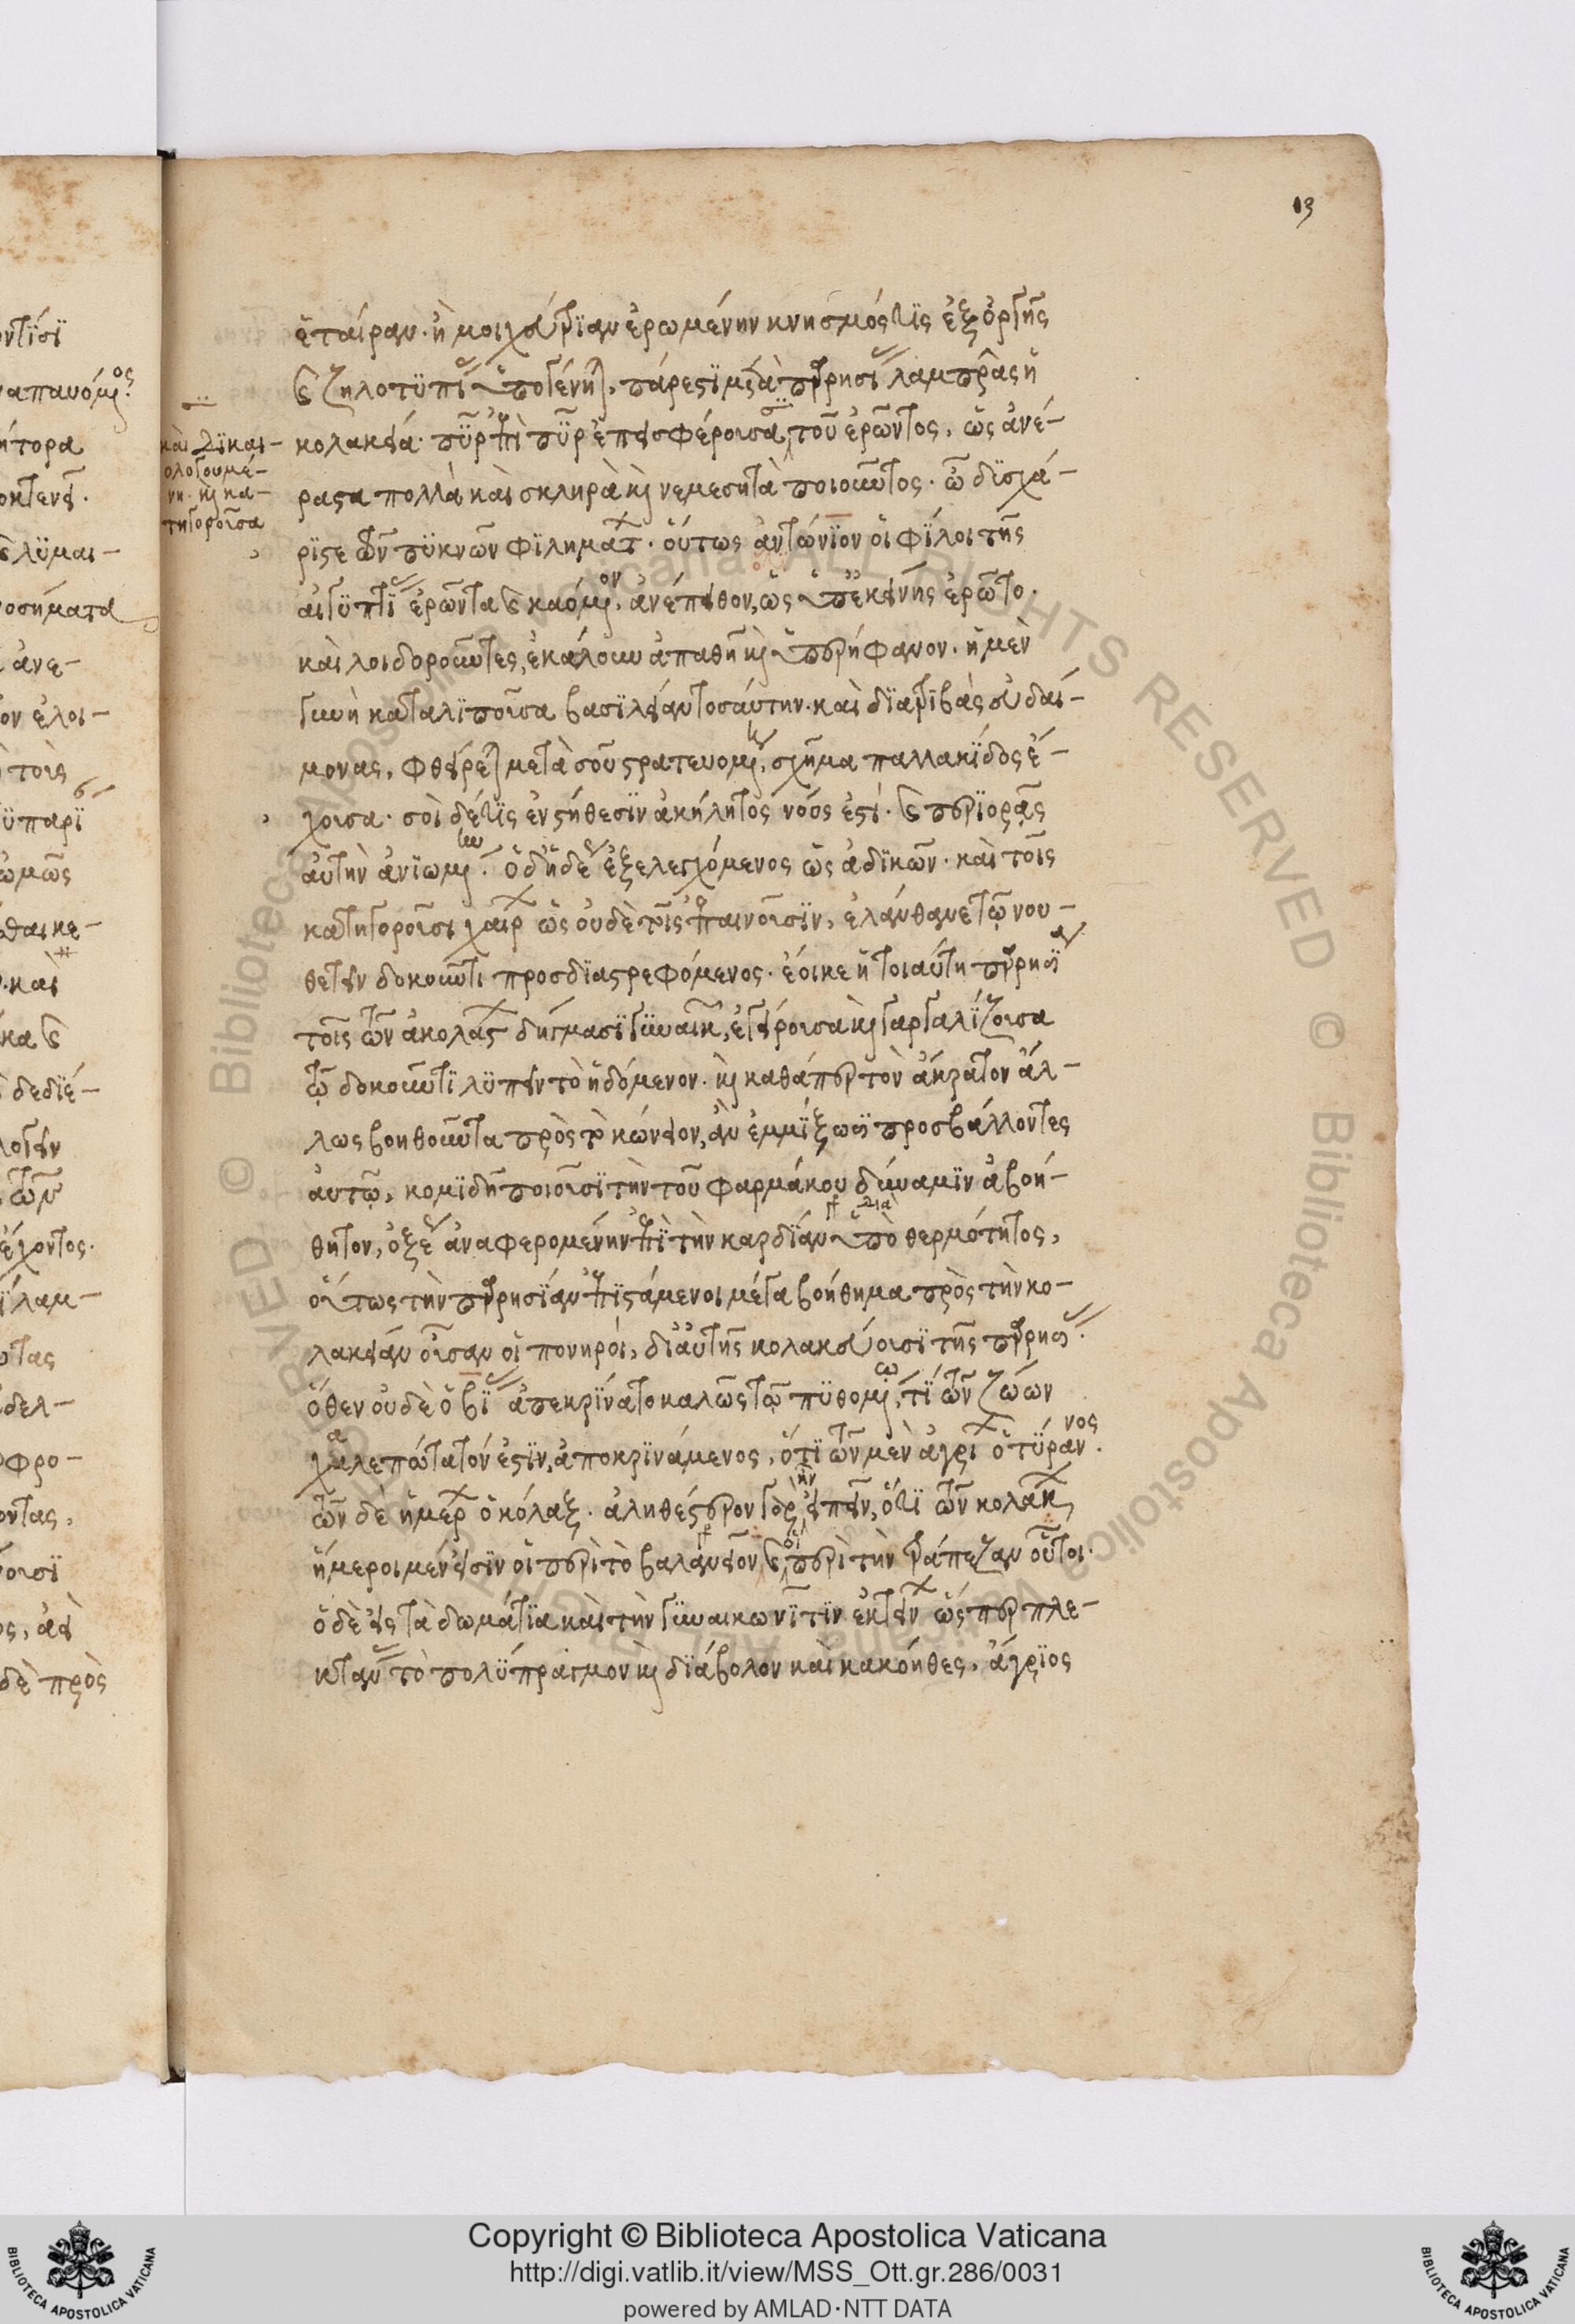 13
ἑταίραν. ἢ μοιχεύτριαν ἐρωμένην κνησμός τις ἐξ ὀργῆς
ἢ ζηλοτυπίας ὑπογένηται, πάρεστι μετὰ παρρησίας λαμπρᾶς ἡ
κολακεία. πῦρ ἐπὶ πῦρ ἐπεισφέρουσα, τοῦ ἐρῶντος, ὡς ἀνε-
ραστα πολλὰ καὶ σκληρὰ καὶ νεμεσητὰ ποιοῦντος. ὦ δυσχά-
ριστε τῶν πυκνῶν φιλημάτων. οὕτως ἀντώνιον οἱ φίλοι τῆς
αἰγυπτίας ἐρῶντα καὶ καόμενον, ἀνέπειθον, ὡς ὑπ' ἐκείνης ἐρῷτο.
καὶ λοιδοροῦντες, ἐκάλουν ἀπαθῆ καὶ ὑπερήφανον. ἡ μὲν
γυνὴ καταλιποῦσα βασιλείαν τοσαύτην. καὶ διατριβὰς εὐδαί-
μονας, φθείρεται μετὰ σοῦ στρατευομένη, σχῆμα παλλακίδος ἔ-
χουσα. σοὶ δέ τις ἐν στήθεσιν ἀκήλητος νόος ἐστί. καὶ περιορᾷς
αὐτὴν ἀνιωμένην. ὁ δ' ἡδέως ἐξελεγχόμενος ὡς ἀδικῶν. καὶ τοῖς
κατηγοροῦσι χαίρων ὡς οὐδὲ τοῖς ἐπαινοῦσιν, ἐλάνθανε τῷ νου-
θετεῖν δοκοῦντι προσδιαστρεφόμενος. ἔοικε ἡ τοιαύτη παρρησία
τοῖς τῶν ἀκολάστων δήγμασι γυναικῶν, ἐγείρουσα καὶ γαργαλίζουσα
τῷ δοκοῦντι λυπεῖν τὸ ἡδόμενον. καὶ καθάπερ τὸν ἄκρατον ἄλ-
λως βοηθοῦντα πρὸς τὸ κώνειον, ἂν ἐμμίξωσι προσβάλλοντες
αὐτῷ, κομιδῇ ποιοῦσι τὴν τοῦ φαρμάκου δύναμιν ἀβοή-
θητον, ὀξέως ἀναφερομένην ἐπὶ τὴν καρδίαν ὑπὸ θερμότητος,
οὕτως τὴν παρρησίαν ἐπιστάμενοι μέγα βοήθημα πρὸς τὴν κο-
λακείαν οὖσαν οἱ πονηροί, δι' αὐτῆς κολακεύουσι τῆς παρρησίας.
ὅθεν οὐδὲ ὁ βίας ἀπεκρίνατο καλῶς τῷ πυθομένῳ, τί τῶν ζώων
χαλεπώτατόν ἐστιν, ἀποκρινάμενος, ὅτι τῶν μὲν ἀγρίων ὁ τύραννος.
τῶν δὲ ἡμέρων ὁ κόλαξ. ἀληθέστερον γὰρ ἦν εἰπεῖν, ὅτι τῶν κολάκων,
ἥμεροι μέν εἰσιν οἱ περὶ τὸ βαλανεῖον, καὶ οἱ περὶ τὴν τράπεζαν οὗτοι.
ὁ δὲ εἰς τὰ δωμάτια καὶ τὴν γυναικωνῖτιν ἐκτείνων ὥσπερ πλε-
κτάνας τὸ πολύπραγμον καὶ διάβολον καὶ κακόηθες, ἄγριος
καὶ δικαι-
ολογουμέ-
νη. καὶ κα-
τηγοροῦσα
Copyright © Biblioteca Apostolica Vaticana
http://digi.vatlib.it/view/MSS_Ott.gr.286/0031
powered by AMLAD·NTT DATA
BIBLIOTECA APOSTOLICA VATICANA
BIBLIOTECA APOSTOLICA VATICANA